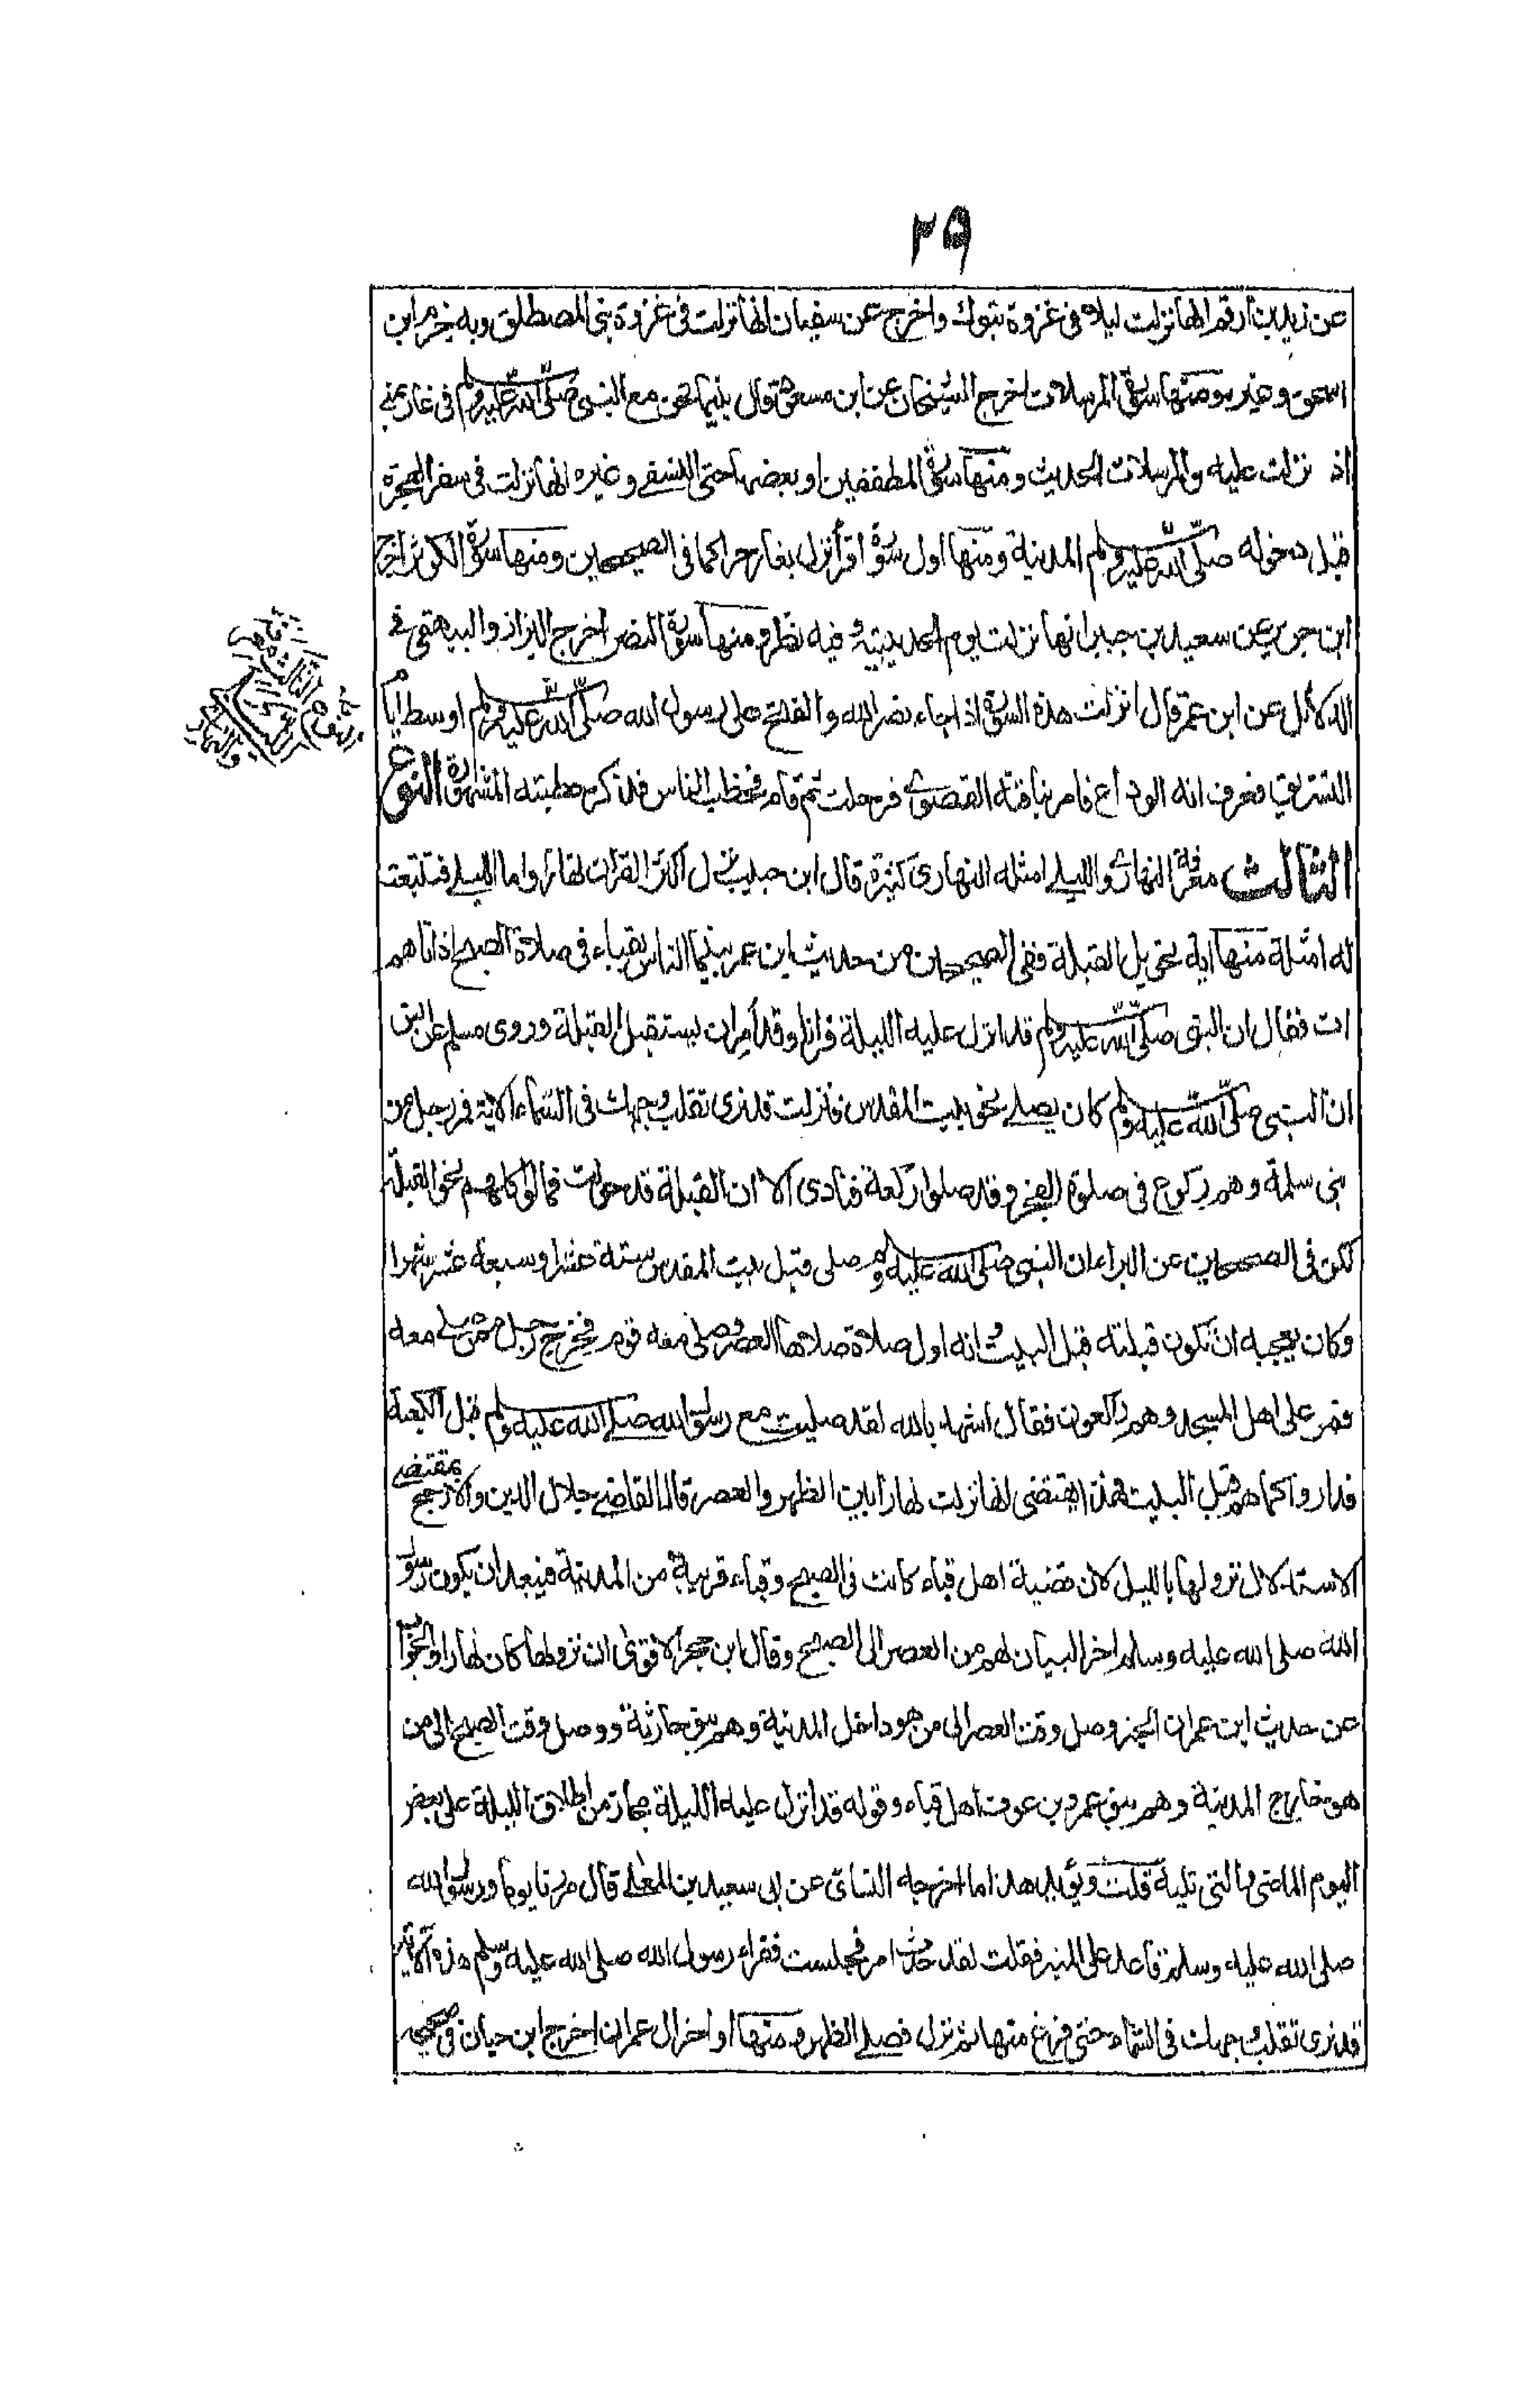 ٢٩
عن زيد بن ارقم انها نزلت ليلا فى غزوة تبوك واخرج عن سفيان انها نزلت فى غزوة بنى المصطلق وبه جزم ابن
اسحق وغيره ومنها سورة المرسلات اخرج الشيخان عن ابن مسعود قال بينما نحن مع النبى صلى الله عليه وسلم فى غار بمنى
اذ نزلت عليه والمرسلات الحديث ومنها سورة المطففين او بعضها حتى النسفى وغيره انها نزلت فى سفر الهجرة
قبل دخوله صلى الله عليه وسلم المدينة ومنها اول سورة اقرأ نزل بغار حرا كما فى الصحيحين ومنها سورة الكوثر اخرج
ابن جرير عن سعيد بن جبير انها نزلت يوم الحديبية وفيه نظر ومنها سورة النصر اخرج البزاز والبيهقى فى
الدلائل عن ابن عمر قال انزلت هذه السورة اذا جاء نصر الله والفتح على رسول الله صلى الله عليه وسلم اوسط ايام
التشريق فعرف انه الوداع فامر بناقته القصوى فرحلت ثم قام فخطب الناس فذكر خطبته المشهورة النوع
الثالث معرفة النهارى والليلى امثلة النهارى كثيرة قال ابن حبيب نزل اكثر القرآن نهارا واما الليلى فتتبعت
له امثلة منها اية تحويل القبلة ففى الصحيحين من حديث ابن عمر بينما الناس بقباء فى صلاة الصبح اذ اتاهم
ات فقال ان النبى صلى الله عليه وسلم قد انزل عليه الليلة قرانا وقد امر ان يستقبل القبلة وروى مسلم عن انس
ان النبى صلى الله عليه وسلم كان يصلى نحو بيت المقدس فنزلت قد نرى تقلب وجهك فى السماء الاية فمر رجل من
بنى سلمة وهم ركوع فى صلوة الفجر وقد صلوا ركعة فنادى الا ان القبلة قد حولت فمالوا كلهم نحو القبلة
لكن فى الصحيحين عن البراء ان النبى صلى الله عليه وسلم صلى قبل بيت المقدس ستة عشر او سبعة عشر شهرا
وكان يعجبه ان تكون قبلته قبل البيت وانه اول صلاة صلاها العصر وصلى معه قوم فخرج رجل ممن صلى معه
فمر على اهل المسجد وهم راكعون فقال اشهد بالله لقد صليت مع رسول الله صلى الله عليه وسلم قبل الكعبة
فداروا كما هم قبل البيت فهذا يقتضى انها نزلت نهارا بين الظهر والعصر قال القاضى جلال الدين والارجح بمقتضى
الاستدلال نزولها بالليل لان قضية اهل قباء كانت فى الصبح وقباء قريبة من المدينة فيبعد ان يكون رسول
الله صلى الله عليه وسلم اخر البيان لهم من العصر الى الصبح وقال ابن حجر الاقوى ان نزولها كان نهارا والجواب
عن حديث ابن عمر ان الخبر وصل وقت العصر الى من هو داخل المدينة وهم بنو حارثة ووصل وقت الصبح الى من
هو خارج المدينة وهم بنو عمرو بن عوف اهل قباء وقوله قد انزل عليه الليلة مجاز من اطلاق الليلة على بعض
اليوم الماضى والتى تليه قلت ويؤيد هذا ما اخرجه النسائى عن ابى سعيد بن المعلى قال مررنا يوما ورسول الله
صلى الله عليه وسلم قاعد على المنبر فقلت لقد حدث امر فجلست فقراء رسول الله صلى الله عليه وسلم هذه الآية
قد نرى تقلب وجهك فى السماء حتى فرغ منها ثم نزل فصلى الظهر ومنها اواخر ال عمران اخرج ابن حبان فى صحيحه
النوع الثالث معرفة